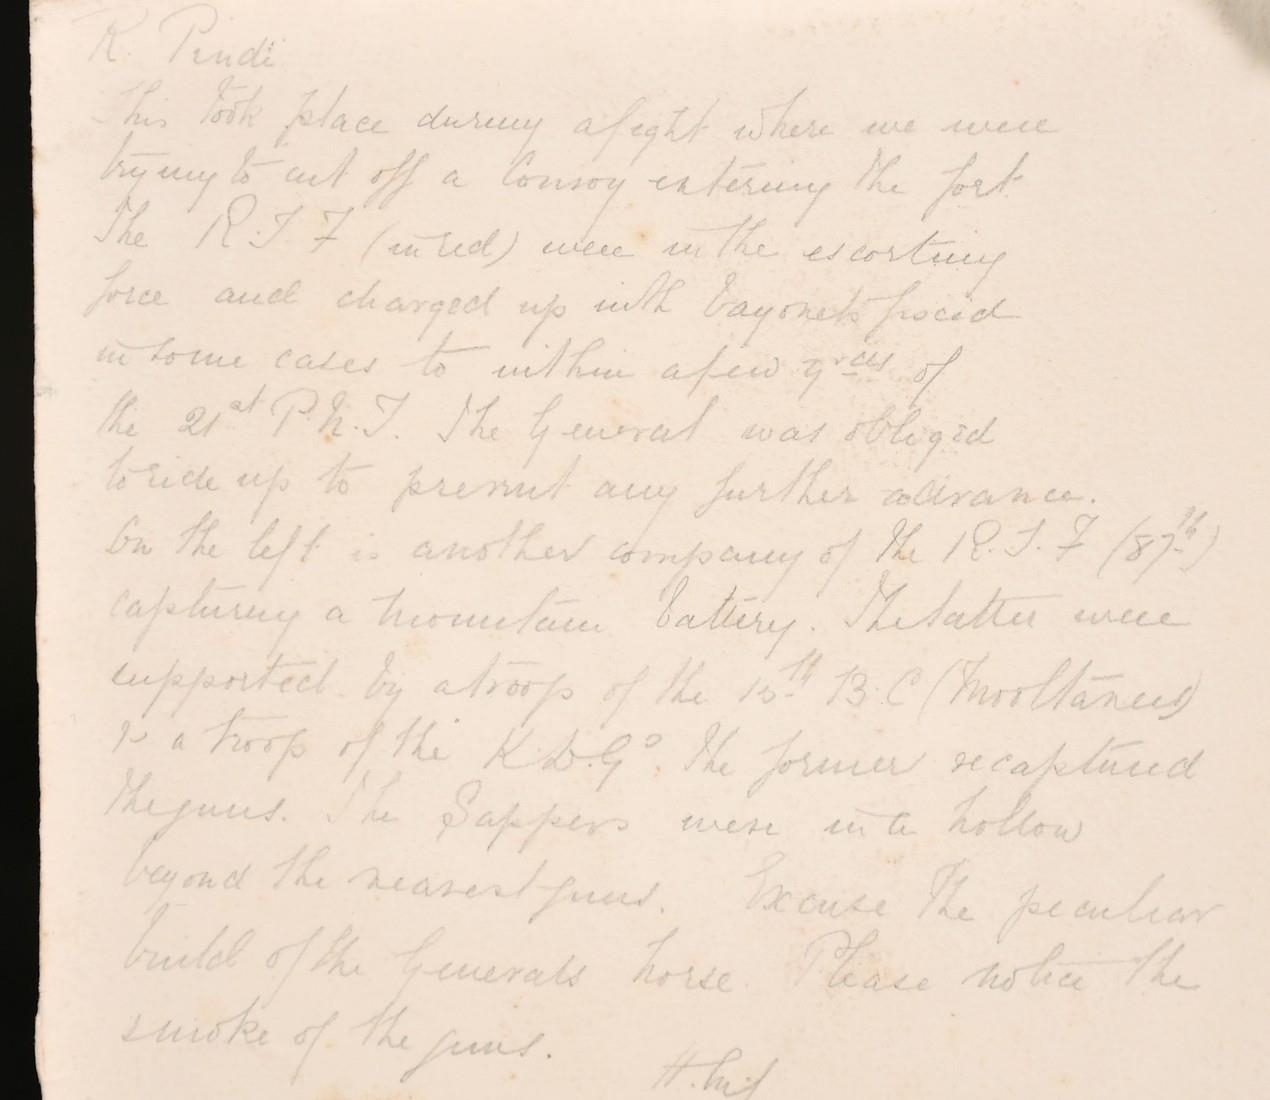 R. Pindi
This took place during a fight where we were
trying to cut off a Convoy entering the fort
The R.I.F (in red) were in the escorting
force and charged up with bayonets fixed
in some cases to within a few yrds of
the 21st P.N.I. The General was obliged
to ride up to prevent any further advance.
On the left is another company of the R.I.F (87th)
capturing a mountain battery. The latter were
supported by a troop of the 15th B.C (Mooltanees)
& a troop of the K.D.Gs. The former recaptured
the guns. The Sappers were in a hollow
beyond the nearest guns. Excuse the peculiar
build of the Generals horse. Please notice the
smoke of the guns.